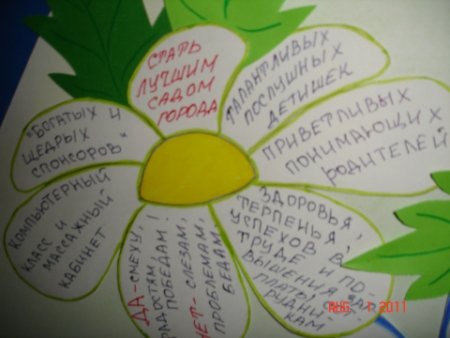 СТАТЬ
ЛУЧШИМ
САДОМ
ГОРОДА
ТАЛАНТЛИВЫХ
ПОСЛУШНЫХ
ДЕТИШЕК
ПРИВЕТЛИВЫХ
ПОНИМАЮЩИХ
РОДИТЕЛЕЙ
ЗДОРОВЬЯ,
ТЕРПЕНЬЯ,
УСПЕХОВ В
ТРУДЕ И ПО-
ВЫШЕНИЯ ЗАР
ПЛАТЫ
КАМ
ДА-СМЕХУ,
РАДОСТЯМ,
ПОБЕДАМ!
НЕТ-СЛЕЗАМ,
ПРОБЛЕМАМ,
БЕДАМ.
КОМПЬЮТЕРНЫЙ
КЛАСС И
МАССАЖНЫЙ
КАБИНЕТ
"БОГАТЫХ И
ЩЕДРЫХ
СПОНСОРОВ"
AUG 1 2011